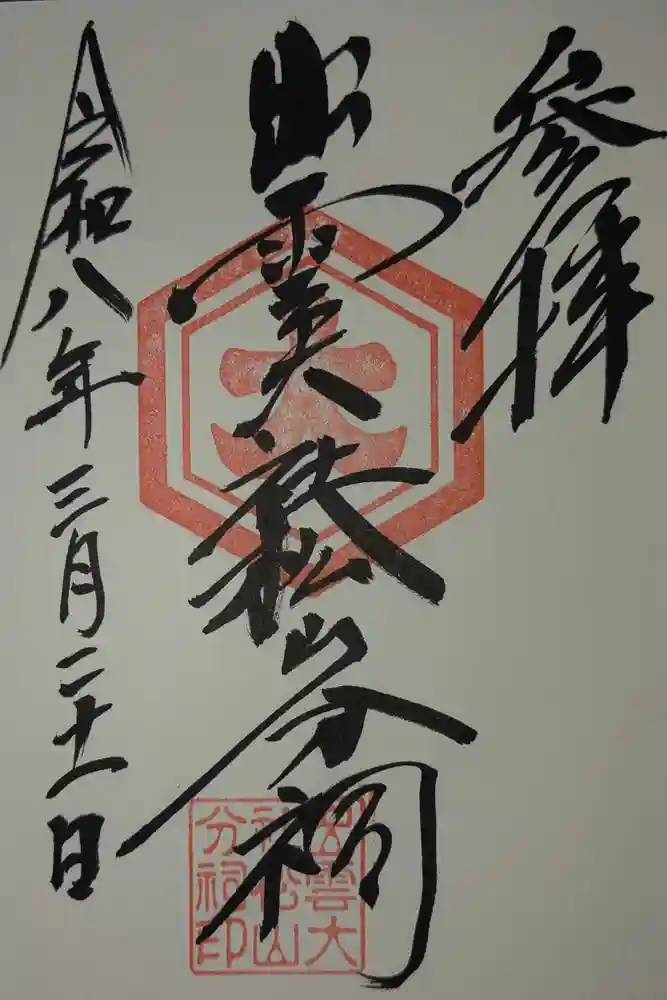 参拝
出雲大社松山分祠
令和八年三月二十一日
大
出雲大
社松山
分祠印